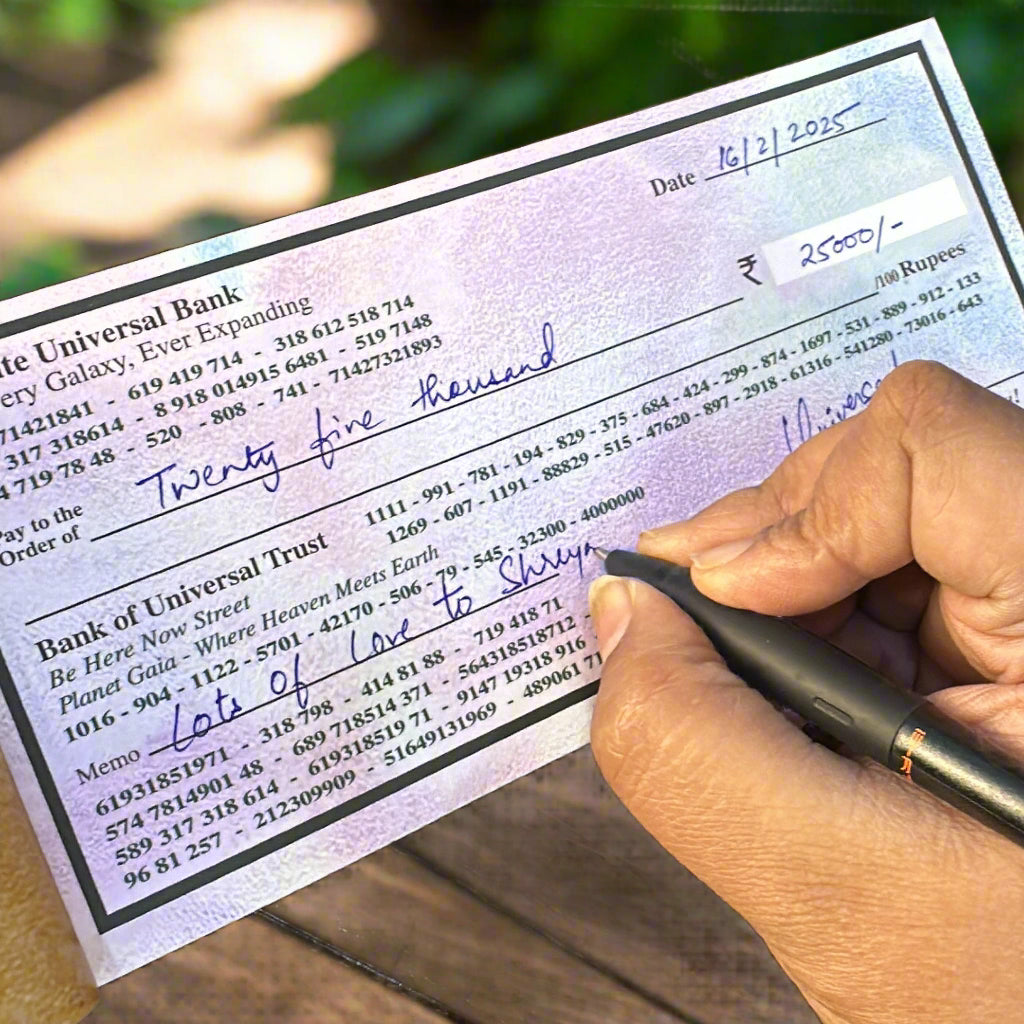 Date 16/2/2025
₹ 25000/-
Universal Bank
Galaxy, Ever Expanding
71421841 - 619 419 714 - 318 612 518 714
317 318614 - 8 918 014915 6481 - 519 7148
4 719 78 48 - 520 - 808 - 741 - 71427321893
Pay to the
Order of Twenty five thousand /100 Rupees
Bank of Universal Trust
Be Here Now Street
Planet Gaia - Where Heaven Meets Earth
1016 - 904 - 1122 - 5701 - 42170 - 506 - 79 - 545 - 32300 - 4000000
1111 - 991 - 781 - 194 - 829 - 375 - 684 - 424 - 299 - 874 - 1697 - 531 - 889 - 912 - 133
1269 - 607 - 1191 - 88829 - 515 - 47620 - 897 - 2918 - 61316 - 541280 - 73016 - 643
Memo Lots of love to Shreya
61931851971 - 318 798 - 414 81 88 - 719 418 71
574 7814901 48 - 689 718514 371 - 564318518712 -
589 317 318 614 - 619318519 71 - 9147 19318 916
96 81 257 - 212309909 - 51649131969 - 489061 71